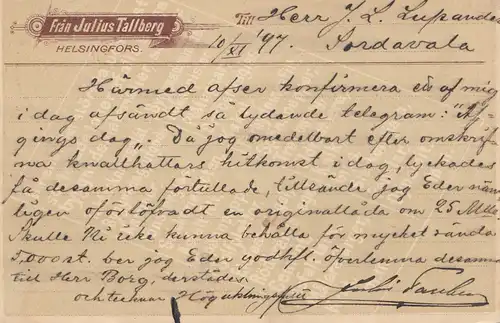 Från Julius Tallberg
HELSINGFORS.
Till Herr J. L. Lupander
10/XI '97. Sordavala
Härmed afser konfirmera ett af mig
i dag afsändt så lydande telegram: "Af-
gings dag". Då jog omedelbart efter omskrif-
na knallhattars hitkomst i dag, lyckades
få desamma förtullade, tillsände jog Eder näm-
ligen oförtöfvadt en originallåda om 25 Mille
Skulle Ni icke kunna behålla för mycket sända
5,000 st. ber jog Eder godhfl. öfverlemna desamma
till Herr Borg, derstädes
och tecknar Högaktningsfullt